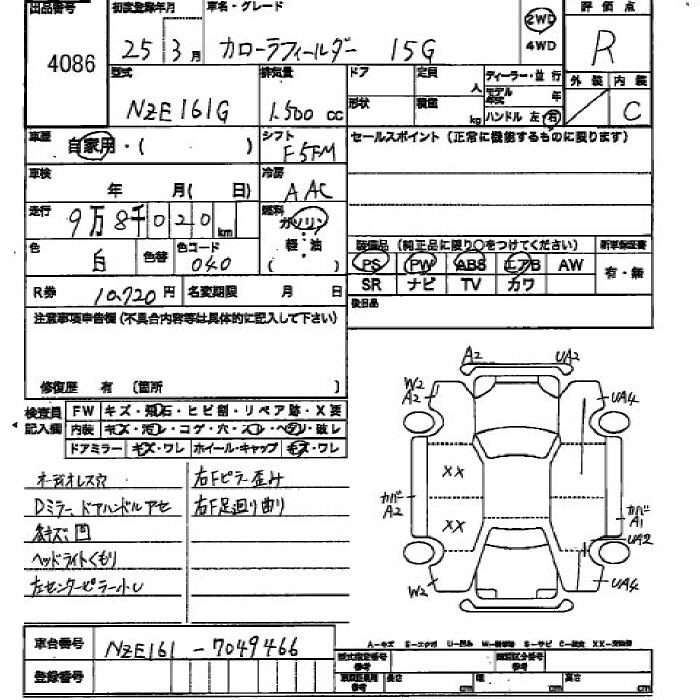 出品番号 初度登録年月 車名・グレード 評価点
4086 25 3月 カローラフィールダー 15G 2WD 4WD R
型式 排気量 ドア 定員 人 ディーラー・並行 外装 内装
NZE161G 1.500 cc 形状 積載 kg モデル年式 年 C
ハンドル 左 右
車歴 自家用・( ) シフト F5FM セールスポイント(正常に機能するものに限ります)
車検 年 月( 日) 冷房 AAC
走行 9万8千020km 燃料 ガソリン
軽・油
( )
色 白 色替 色コード 040
装備品(純正品に限り○をつけてください) 新車保証書
PS PW ABS エアB AW 有・無
SR ナビ TV カワ
R券 10.720円 名変期限 月 日 後日品
注意事項申告欄(不具合内容等は具体的に記入して下さい)
修復歴 有 (箇所 )
検査員記入欄 FW キズ・飛石・ヒビ割・リペア跡・X要
内装 キズ・汚レ・コゲ・穴・スレ・ヘタリ・破レ
ドアミラー キズ・ワレ ホイール・キャップ キズ・ワレ
オーディオレス穴 右Fピラー歪み
Dミラー、ドアハンドルアセ 右F足廻り曲り
ヘッドライトくもり
左センターピラー小U
A2 UA2
W2
A2 UA4
XX
カバー
A2 カバー
A1
XX
UA2
W2 UA4
車台番号 NZE161-7049466
登録番号
A-キズ E-エクボ U-凹み S-サビ
型式指定番号 類別区分番号
長さ cm 幅 cm 高さ cm